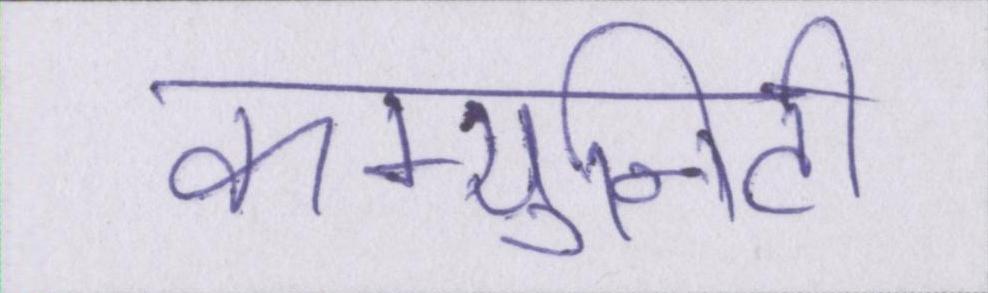 कम्युनिटी